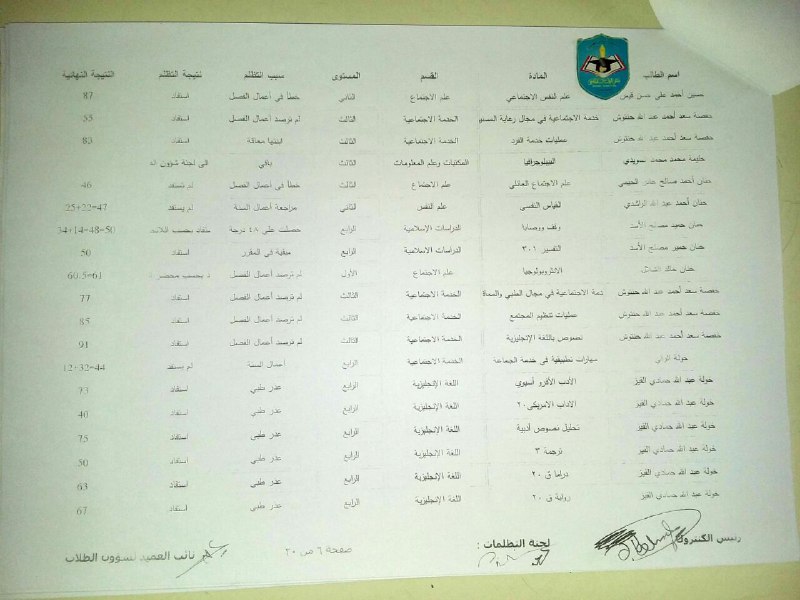 اسم الطالب المادة القسم المستوى سبب التظلم نتيجة التظلم النتيجة النهائية
حسير أحمد علي حسن قيس علم النفس الاجتماعي علم الاجتماع الثاني خطأ في أعمال الفصل استفاد 87
حفصة سعد أحمد عبد الله حنتوش خدمة الاجتماعية في مجال رعاية المسنين الخدمة الاجتماعية الثالث لم ترصد أعمال الفصل استفاد 55
حفصة سعد أحمد عبد الله حنتوش عمليات خدمة الفرد الخدمة الاجتماعية الثالث ابنتها معاقة استفاد 83
حليمة محمد محمد سويدي الببليوجرافيا المكتبات وعلم المعلومات الثالث باقي الى لجنة شؤون
حنان أحمد صالح الحيمي علم الاجتماع العائلي علم الاجتماع الثالث خطأ في أعمال الفصل لم يستفد 46
حنان أحمد عبد الله الراشدي القياس النفسي علم النفس الثاني مراجعة أعمال السنة لم يستفد 25+22=47
حنان حميد مصلح الأسد وقف ووصايا الدراسات الإسلامية الرابع حصلت على ٤٨ درجة 34+14=48=50
حنان حميد مصلح الأسد التفسير ٣٠١ الدراسات الاسلامية الرابع مبقية في المقرر استفاد 50
حنان خالد الانثروبولوجيا علم الاجتماع الأول لم ترصد أعمال الفصل 60.5=61
حفصة سعد أحمد عبد الله حنتوش دمة الاجتماعية في مجال الطبي والمعاق الخدمة الاجتماعية الثالث لم ترصد أعمال الفصل استفاد 77
حفصة سعد أحمد عبد الله حنتوش عمليات تنظيم المجتمع الخدمة الاجتماعية الثالث لم ترصد أعمال الفصل استفاد 85
حفصة سعد أحمد عبد الله حنتوش نصوص باللغة الإنجليزية الخدمة الاجتماعية الثالث لم ترصد أعمال الفصل استفاد 91
خولة مهارات تطبيقية في خدمة الجماعة الخدمة الاجتماعية الرابع أعمال السنة لم يستفد 12+32=44
خولة عبد الله حمادي القيز الأدب الأفرو أسيوي اللغة الإنجليزية الرابع عذر طبي استفاد 73
خولة عبد الله حمادي القيز الاداب الامريكي ٢٠ اللغة الإنجليزية الرابع عذر طبي استفاد 40
خولة عبد الله حمادي القيز تحليل نصوص أدبية اللغة الإنجليزية الرابع عذر طبي استفاد 75
خولة عبد الله حمادي القيز ترجمة ٣ اللغة الإنجليزية الرابع عذر طبي استفاد 50
خولة عبد الله حمادي القيز دراما ق ٢٠ اللغة الإنجليزية الرابع عذر طبي استفاد 63
خولة عبد الله حمادي القيز رواية ق ٢٠ اللغة الإنجليزية الرابع عذر طبي استفاد 67
رئيس الكنترول لجنة التظلمات : صفحة ٦ من ٢٠ نائب العميد لشؤون الطلاب